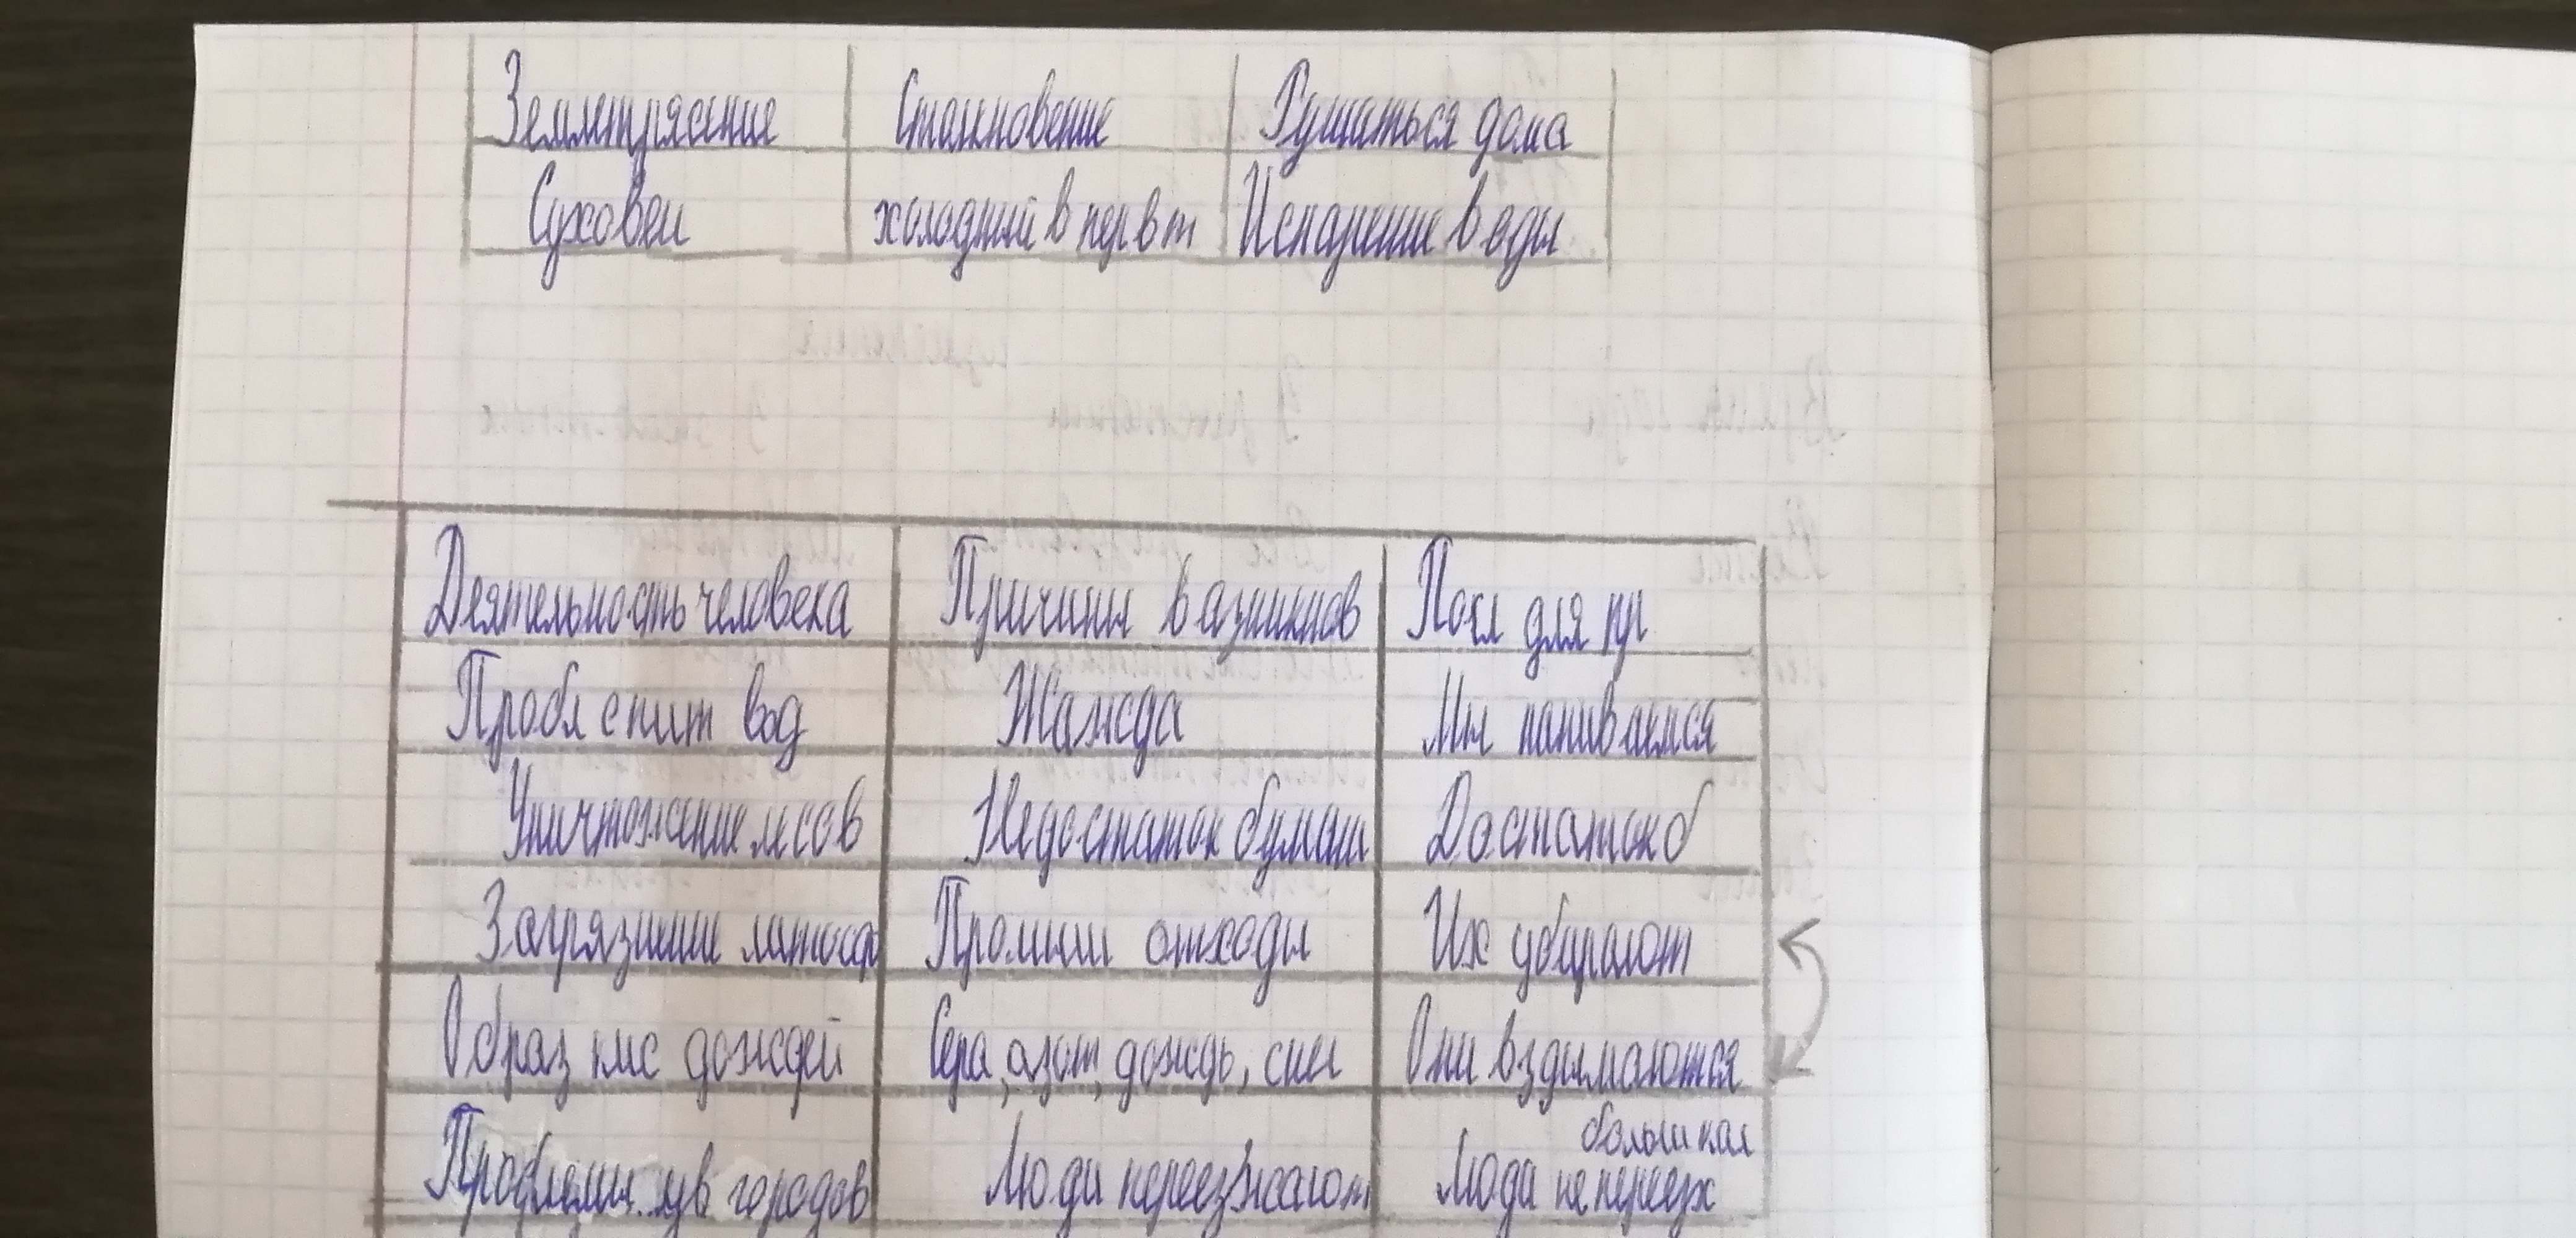 Землетрясение Столкновение Рушаться дома
Суховеи холодный в перв т Испарение воды
Деятельность человека Причины вазникнов Посл для пр
Пробл с пит вод Жажда Мы напиваемся
Уничтожение лесов Недостаток бумаги Достаток б
Загрязнение Промыш отходы Их убирают
Образ кис дождей Сера, азот, дождь, снег Они вздымаются
больш кол
Проблемы ув городов Люди переезжают Люди не переезж